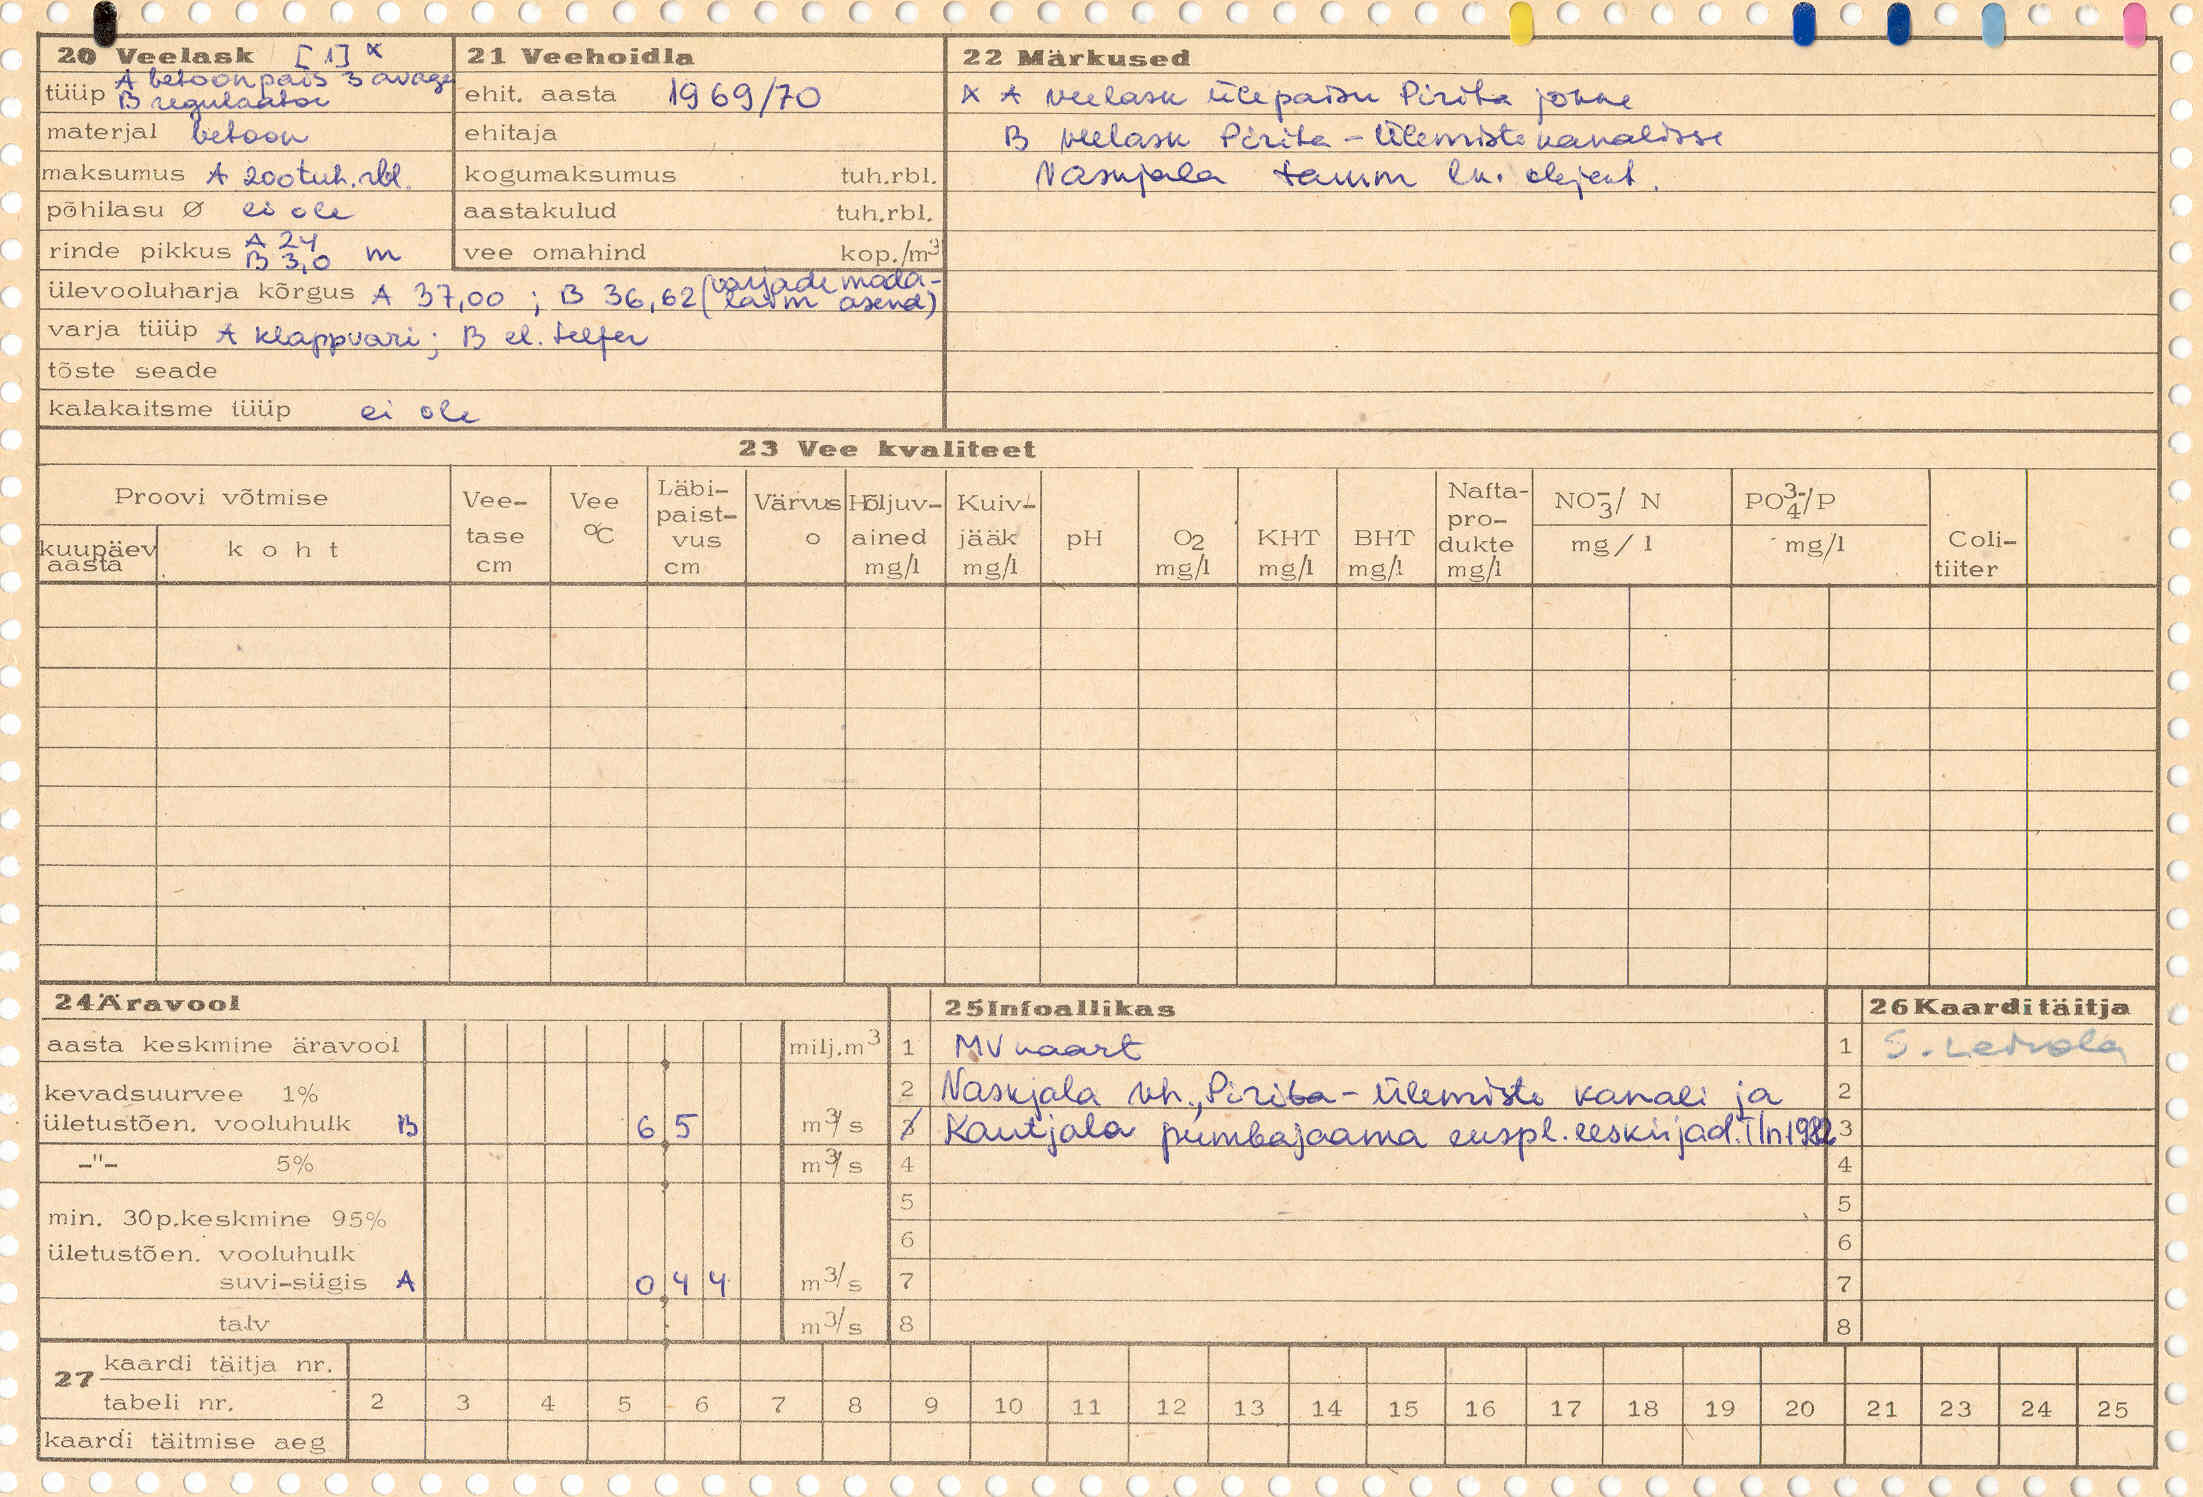 20 Veelask [1] x
tüüp A betoonpais 3 avaga
B regulaator
materjal betoon
maksumus A 200 tuh.rbl.
põhilasu Ø ei ole
rinde pikkus A 24
B 3,0 m
ülevooluharja kõrgus A 37,00 ; B 36,62 (varjade mada-
laim asend)
varja tüüp A klappvari; B el. telfer
tõste seade
kalakaitsme tüüp ei ole
21 Veehoidla
ehit. aasta 1969/70
ehitaja
kogumaksumus tuh.rbl.
aastakulud tuh.rbl.
vee omahind kop./m3
22 Märkused
x A veelask ülepaisu Pirita jõkke
B veelask Pirita – Ülemiste kanalisse
Vaskjala tamm
23 Vee kvaliteet
Proovi võtmise
kuupäev
aasta
koht
Vee-
tase
cm
Vee
°C
Läbi-
paist-
vus
cm
Värvus
o
Hõljuv-
ained
mg/l
Kuiv-
jääk
mg/l
pH
O2
mg/l
KHT
mg/l
BHT
mg/l
Nafta-
pro-
dukte
mg/l
NO3-/ N
mg/l
PO4 3-/P
mg/l
Coli-
tiiter
24 Äravool
aasta keskmine äravool milj.m3
kevadsuurvee 1%
ületustõen. vooluhulk B 6 5 m3/s
-"- 5% m3/s
min. 30p.keskmine 95%
ületustõen. vooluhulk
suvi-sügis A 0 4 4 m3/s
talv m3/s
25 Infoallikas
1 MV kaart
2 Vaskjala vh., Pirita – Ülemiste kanali ja
3 Kautjala pumbajaama ekspl. eeskirjad. Tln 1982
4
5
6
7
8
26 Kaardi täitja
1
2
3
4
5
6
7
8
27 kaardi täitja nr.
tabeli nr. 2 3 4 5 6 7 8 9 10 11 12 13 14 15 16 17 18 19 20 21 23 24 25
kaardi täitmise aeg